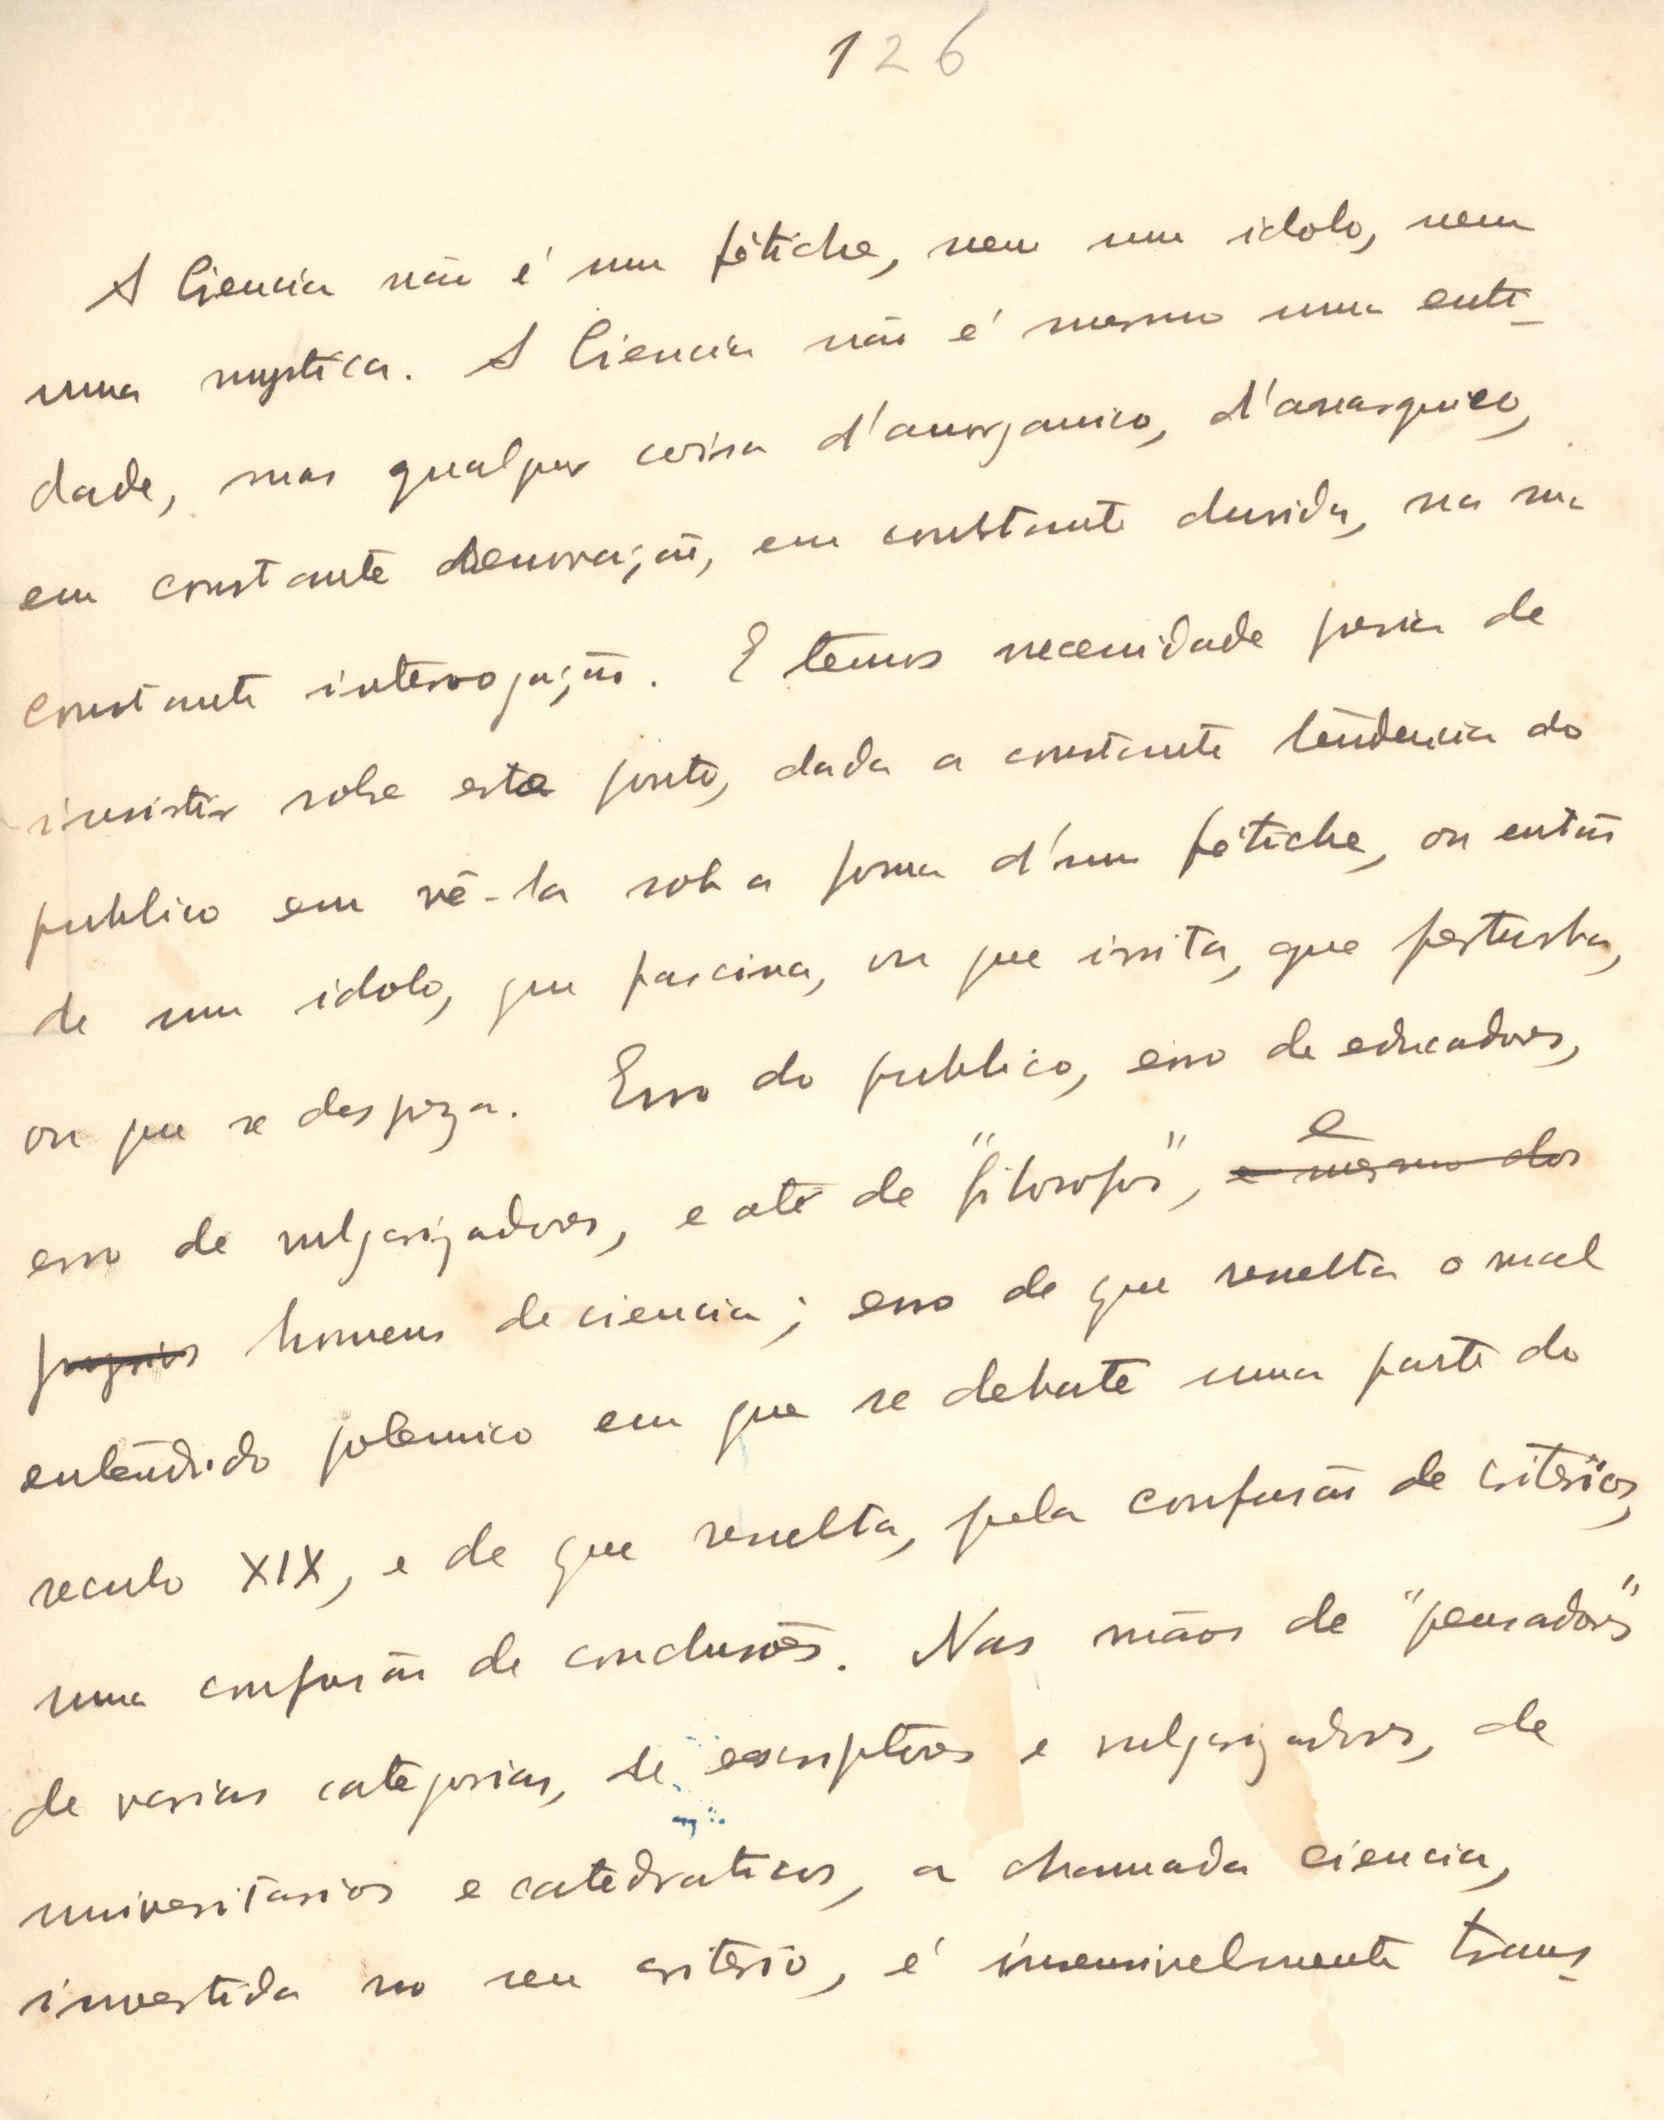 126
A Ciencia não é um fétiche, nem um idolo, nem
uma mystica. A Ciencia não é mesmo uma enti-
dade, mas qualquer coisa d'anorganico, d'anarquico,
em constante renovação, em constante duvida, na sua
constante interrogação. E temos necessidade para de
insistir sobre este ponto, dada a constante tendencia do
publico em vê-la sob a forma d'um fétiche, ou então
de um idolo, que fascina, ou que irrita, que perturba,
ou que se despreza. Erro do publico, erro de educadores,
erro de vulgarizadores, e até de "filosofos", e mesmo dos e
proprios homens de ciencia; erro de que resulta o mal
entendido polemico em que se debate uma parte do
seculo XIX, e de que resulta, pela confusão de criterios,
uma confusão de conclusões. Nas mãos de "pensadores"
de varias categorias, de escriptores e vulgarizadores, de
universitarios e catedraticos, a chamada ciencia,
investida no seu criterio, é insensivelmente trans-